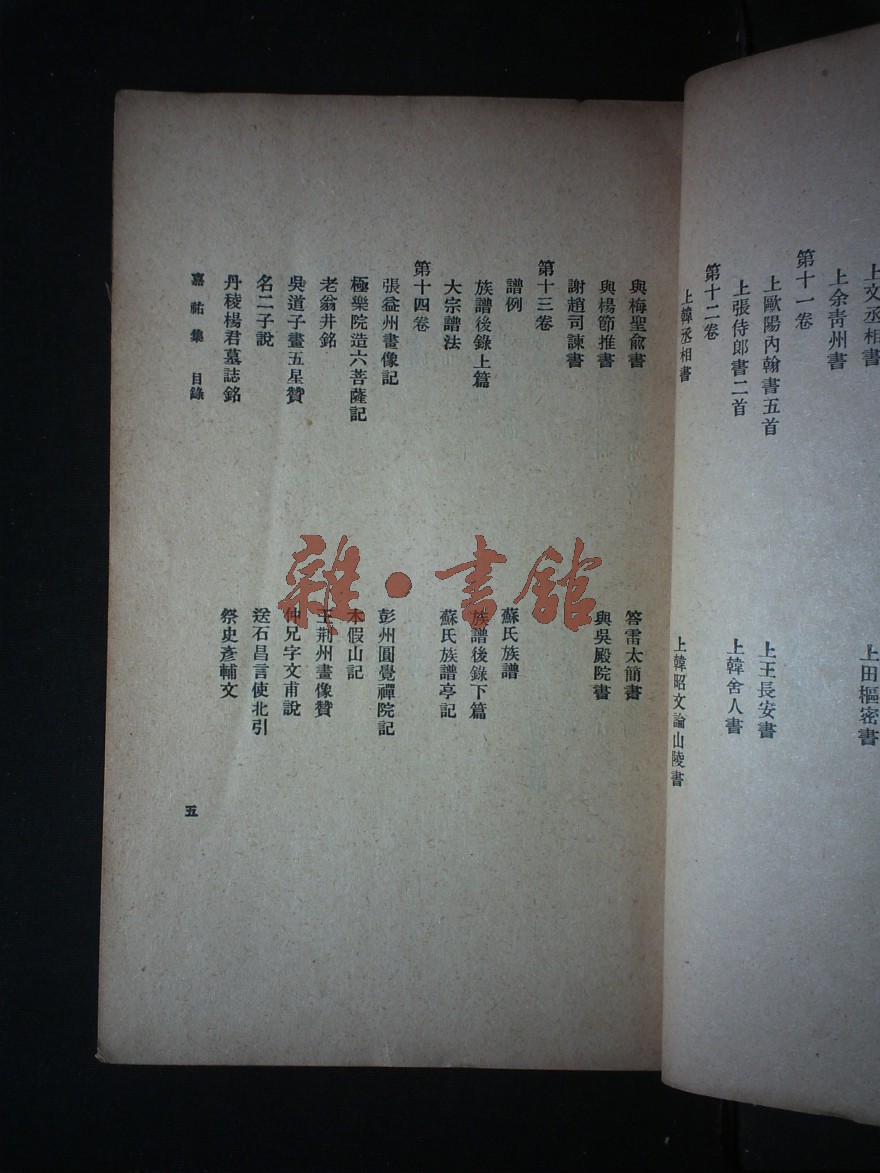 上文丞相書
上田樞密書
上余靑州書
第十一卷
上歐陽內翰書五首
上王長安書
上張侍郎書二首
上韓舍人書
第十二卷
上韓丞相書
上韓昭文論山陵書
與梅聖兪書
答雷太簡書
與楊節推書
與吳殿院書
謝趙司諫書
第十三卷
譜例
蘇氏族譜
族譜後錄上篇
族譜後錄下篇
大宗譜法
蘇氏族譜亭記
第十四卷
張益州畫像記
彭州圓覺禪院記
極樂院造六菩薩記
木假山記
老翁井銘
王荆州畫像贊
吳道子畫五星贊
仲兄字文甫說
名二子說
送石昌言使北引
丹稜楊君墓誌銘
祭史彥輔文
嘉祐集 目錄
五
雜·書館